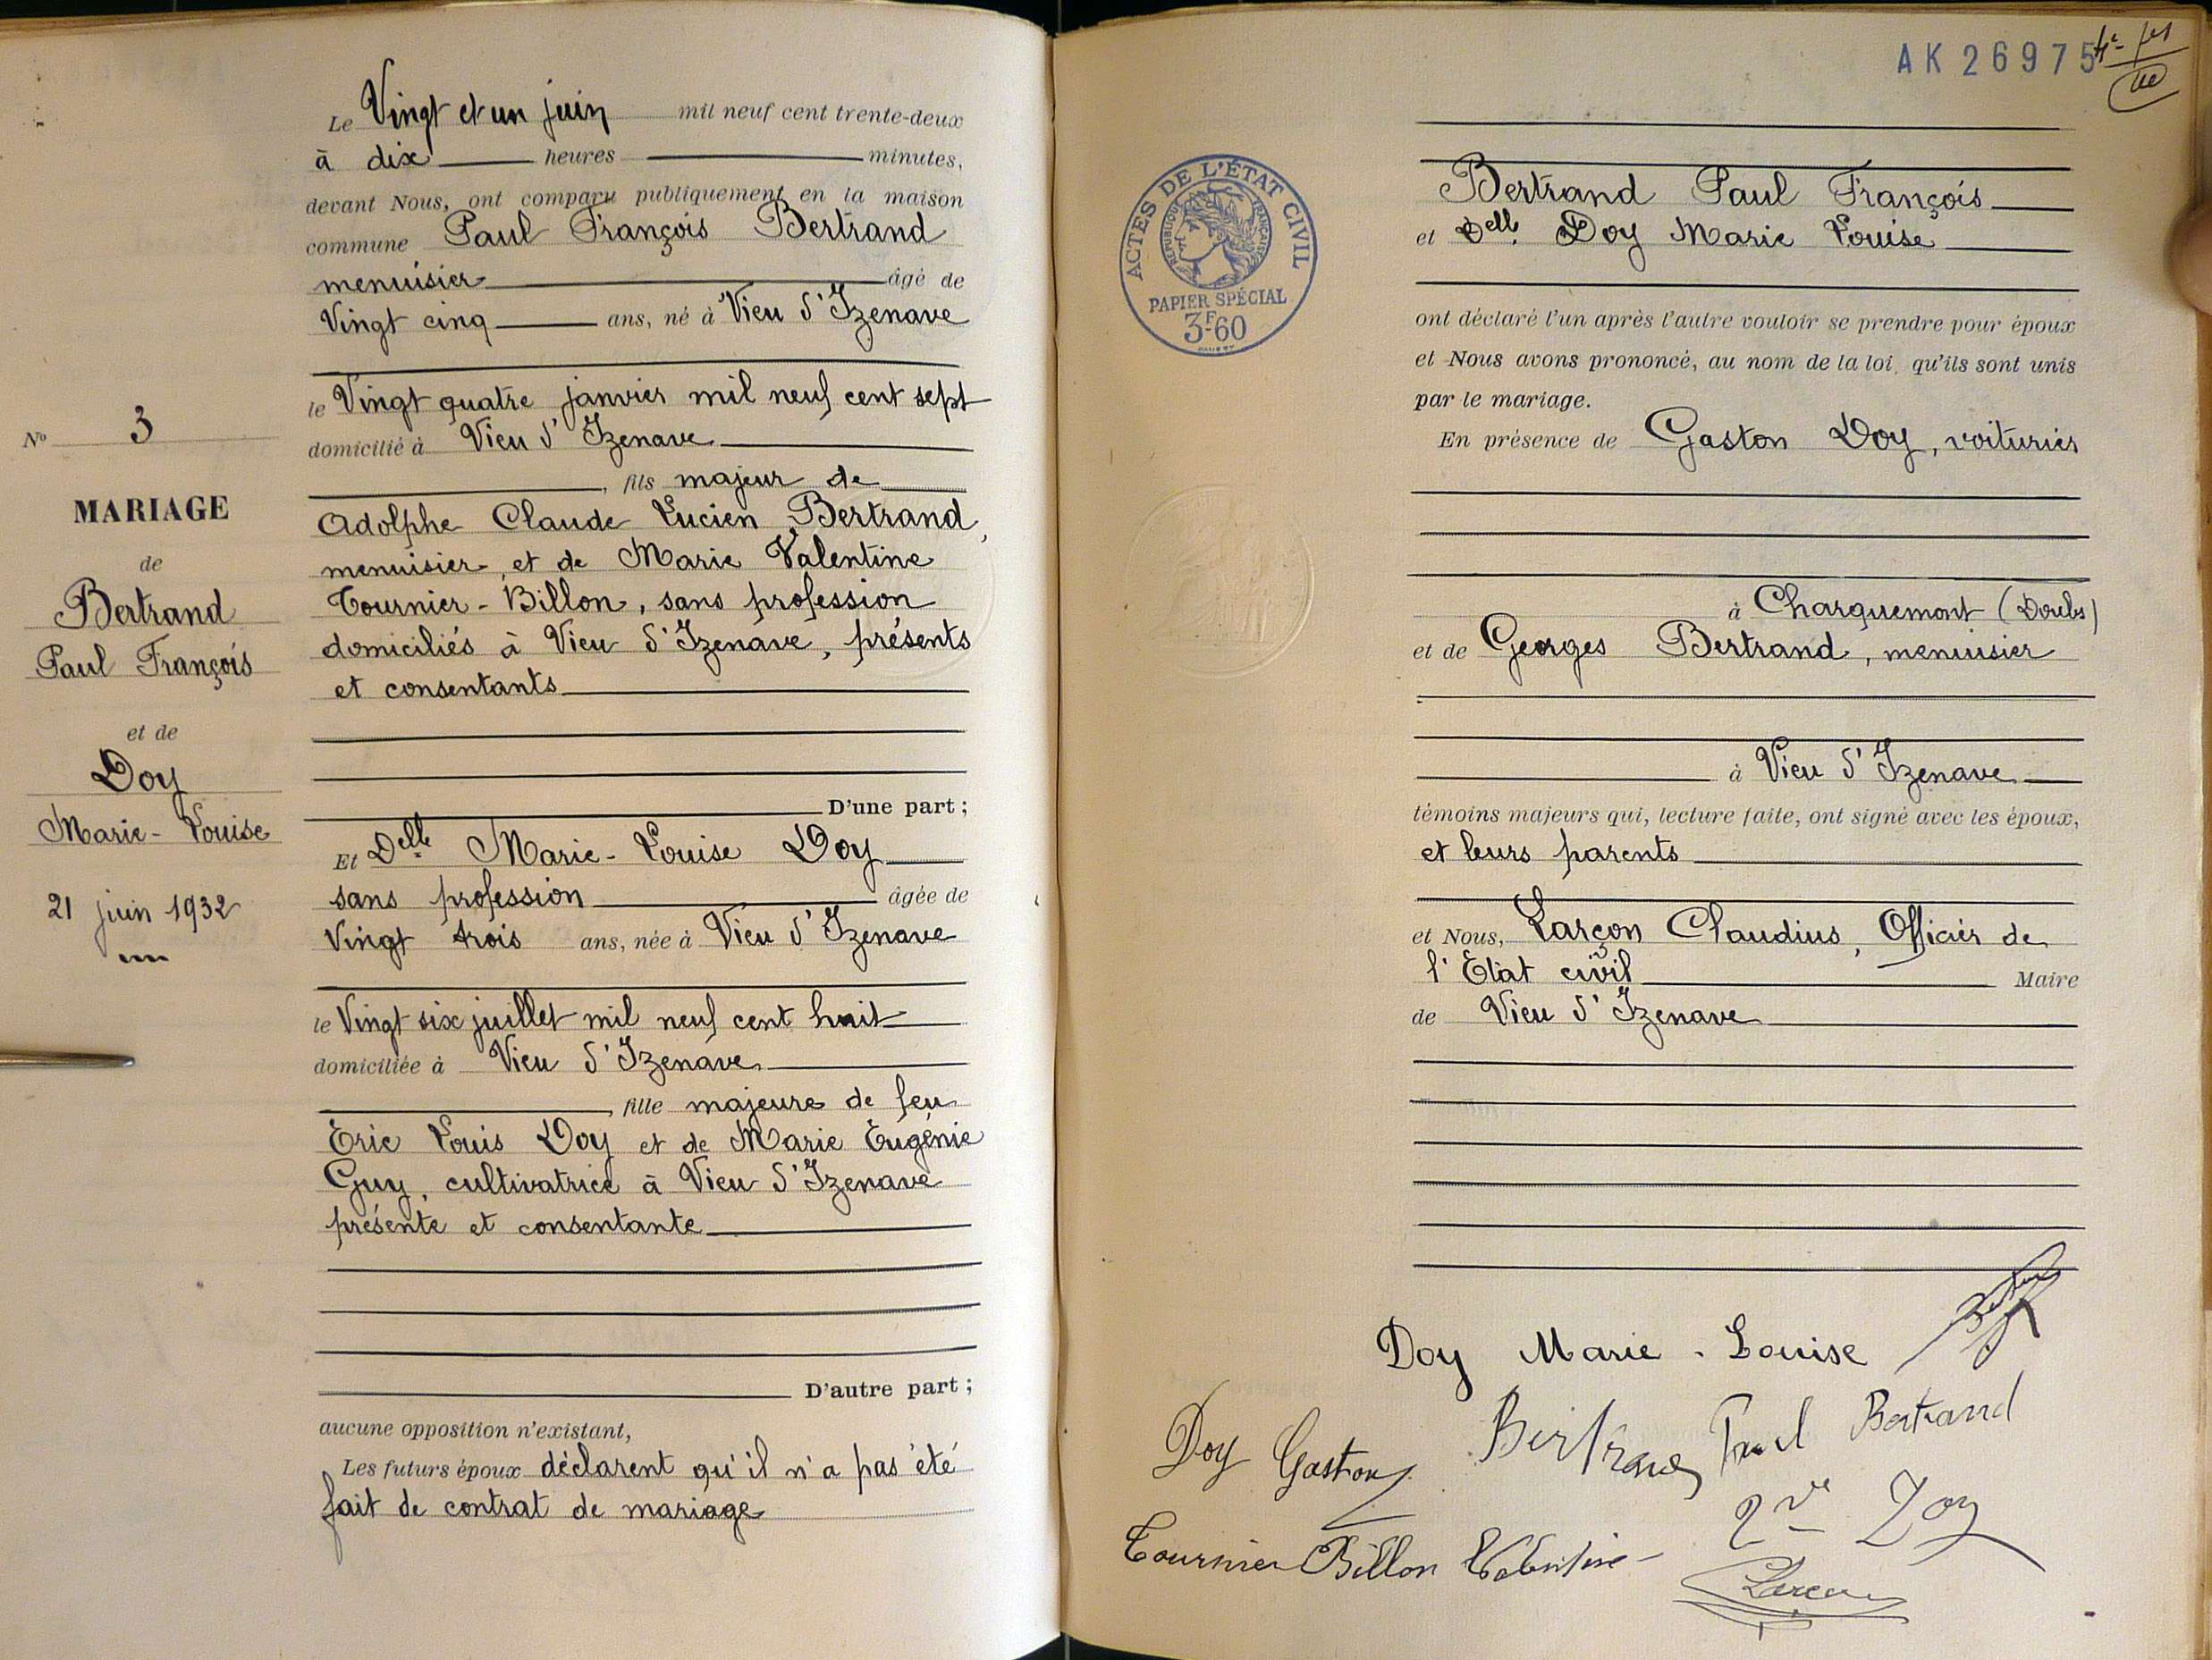 N° 3
MARIAGE
de
Bertrand
Paul François
et de
Doy
Marie-Louise
21 juin 1932
Le Vingt et un juin mil neuf cent trente-deux
à dix heures minutes,
devant Nous, ont comparu publiquement en la maison
commune Paul François Bertrand
menuisier âgé de
Vingt cinq ans, né à Vieu d'Izenave
le Vingt quatre janvier mil neuf cent sept
domicilié à Vieu d'Izenave
, fils majeur de
Adolphe Claude Lucien Bertrand,
menuisier, et de Marie Valentine
Tournier-Billon, sans profession
domiciliés à Vieu d'Izenave, présents
et consentants
D'une part ;
Et Delle Marie-Louise Doy
sans profession âgée de
Vingt trois ans, née à Vieu d'Izenave
le Vingt six juillet mil neuf cent huit
domiciliée à Vieu d'Izenave
, fille majeure de feu
Eric Louis Doy et de Marie Eugénie
Guy, cultivatrice à Vieu d'Izenave
présente et consentante
D'autre part ;
aucune opposition n'existant,
Les futurs époux déclarent qu'il n'a pas été
fait de contrat de mariage
AK 26975
ACTES DE L'ÉTAT CIVIL
RÉPUBLIQUE FRANÇAISE
PAPIER SPÉCIAL
3F60
Bertrand Paul François
et Delle Doy Marie Louise
ont déclaré l'un après l'autre vouloir se prendre pour époux
et Nous avons prononcé, au nom de la loi, qu'ils sont unis
par le mariage.
En présence de Gaston Doy, voiturier
à Charquemont (Doubs)
et de Georges Bertrand, menuisier
à Vieu d'Izenave
témoins majeurs qui, lecture faite, ont signé avec les époux,
et leurs parents
et Nous, Larçon Claudius, Officier de
l'Etat civil Maire
de Vieu d'Izenave
Doy Marie-Louise
Doy Gaston Bertrand Paul Bertrand
Tournier Billon Valentine Vve Doy
Larçon